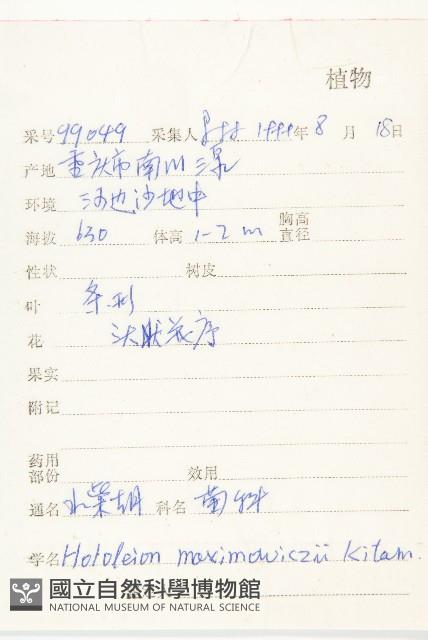 植物
采号 99049 采集人 年 8 月 18日
产地 重庆市南川三泉
环境 河边沙地中
海拔 630 体高 1-2 m 胸高直径
性状 树皮
叶 条形
花 头状花序
果实
附记
药用部份 效用
通名 科名 菊科
学名 Hololeion maximowiczii Kitam.
國立自然科學博物館
NATIONAL MUSEUM OF NATURAL SCIENCE